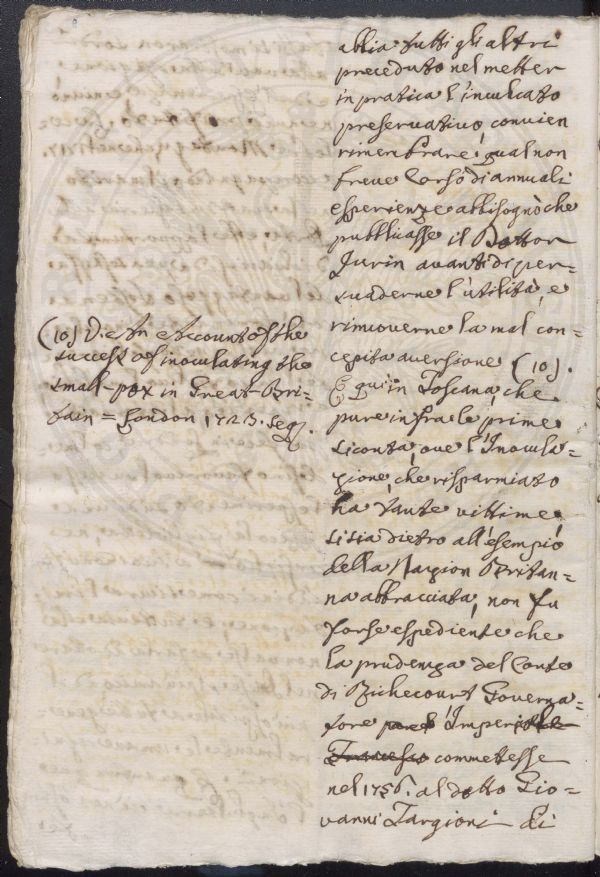 abbia tutti gli altri
preceduto nel metter
in pratica l'inculcato
preservativo, convien
rimembrare qual non
breve Corso di annuali
esperienze abbisognò che
pubblicasse il Dottor
Jurin avanti di per=
suaderne l'utilità, e
rimuoverne la mal con=
cepita aversione (10).
E qui in Toscana, che
pure infra le prime
si conta, ove l'Inocula=
zione, che risparmiato
ha tante vittime,
si sia dietro all'esempio
della Nazion Britan=
na abbracciata, non fu
forse espediente che
la prudenza del Conte
di Richecourt Governa=
tore Imperiale
Francesco commettesse
nel 1756. al dotto Gio=
vanni Targioni di
(10) Vie An Account of the
success of inoculating the
small-pox in Great-Bri=
tain = London 1723. seq.